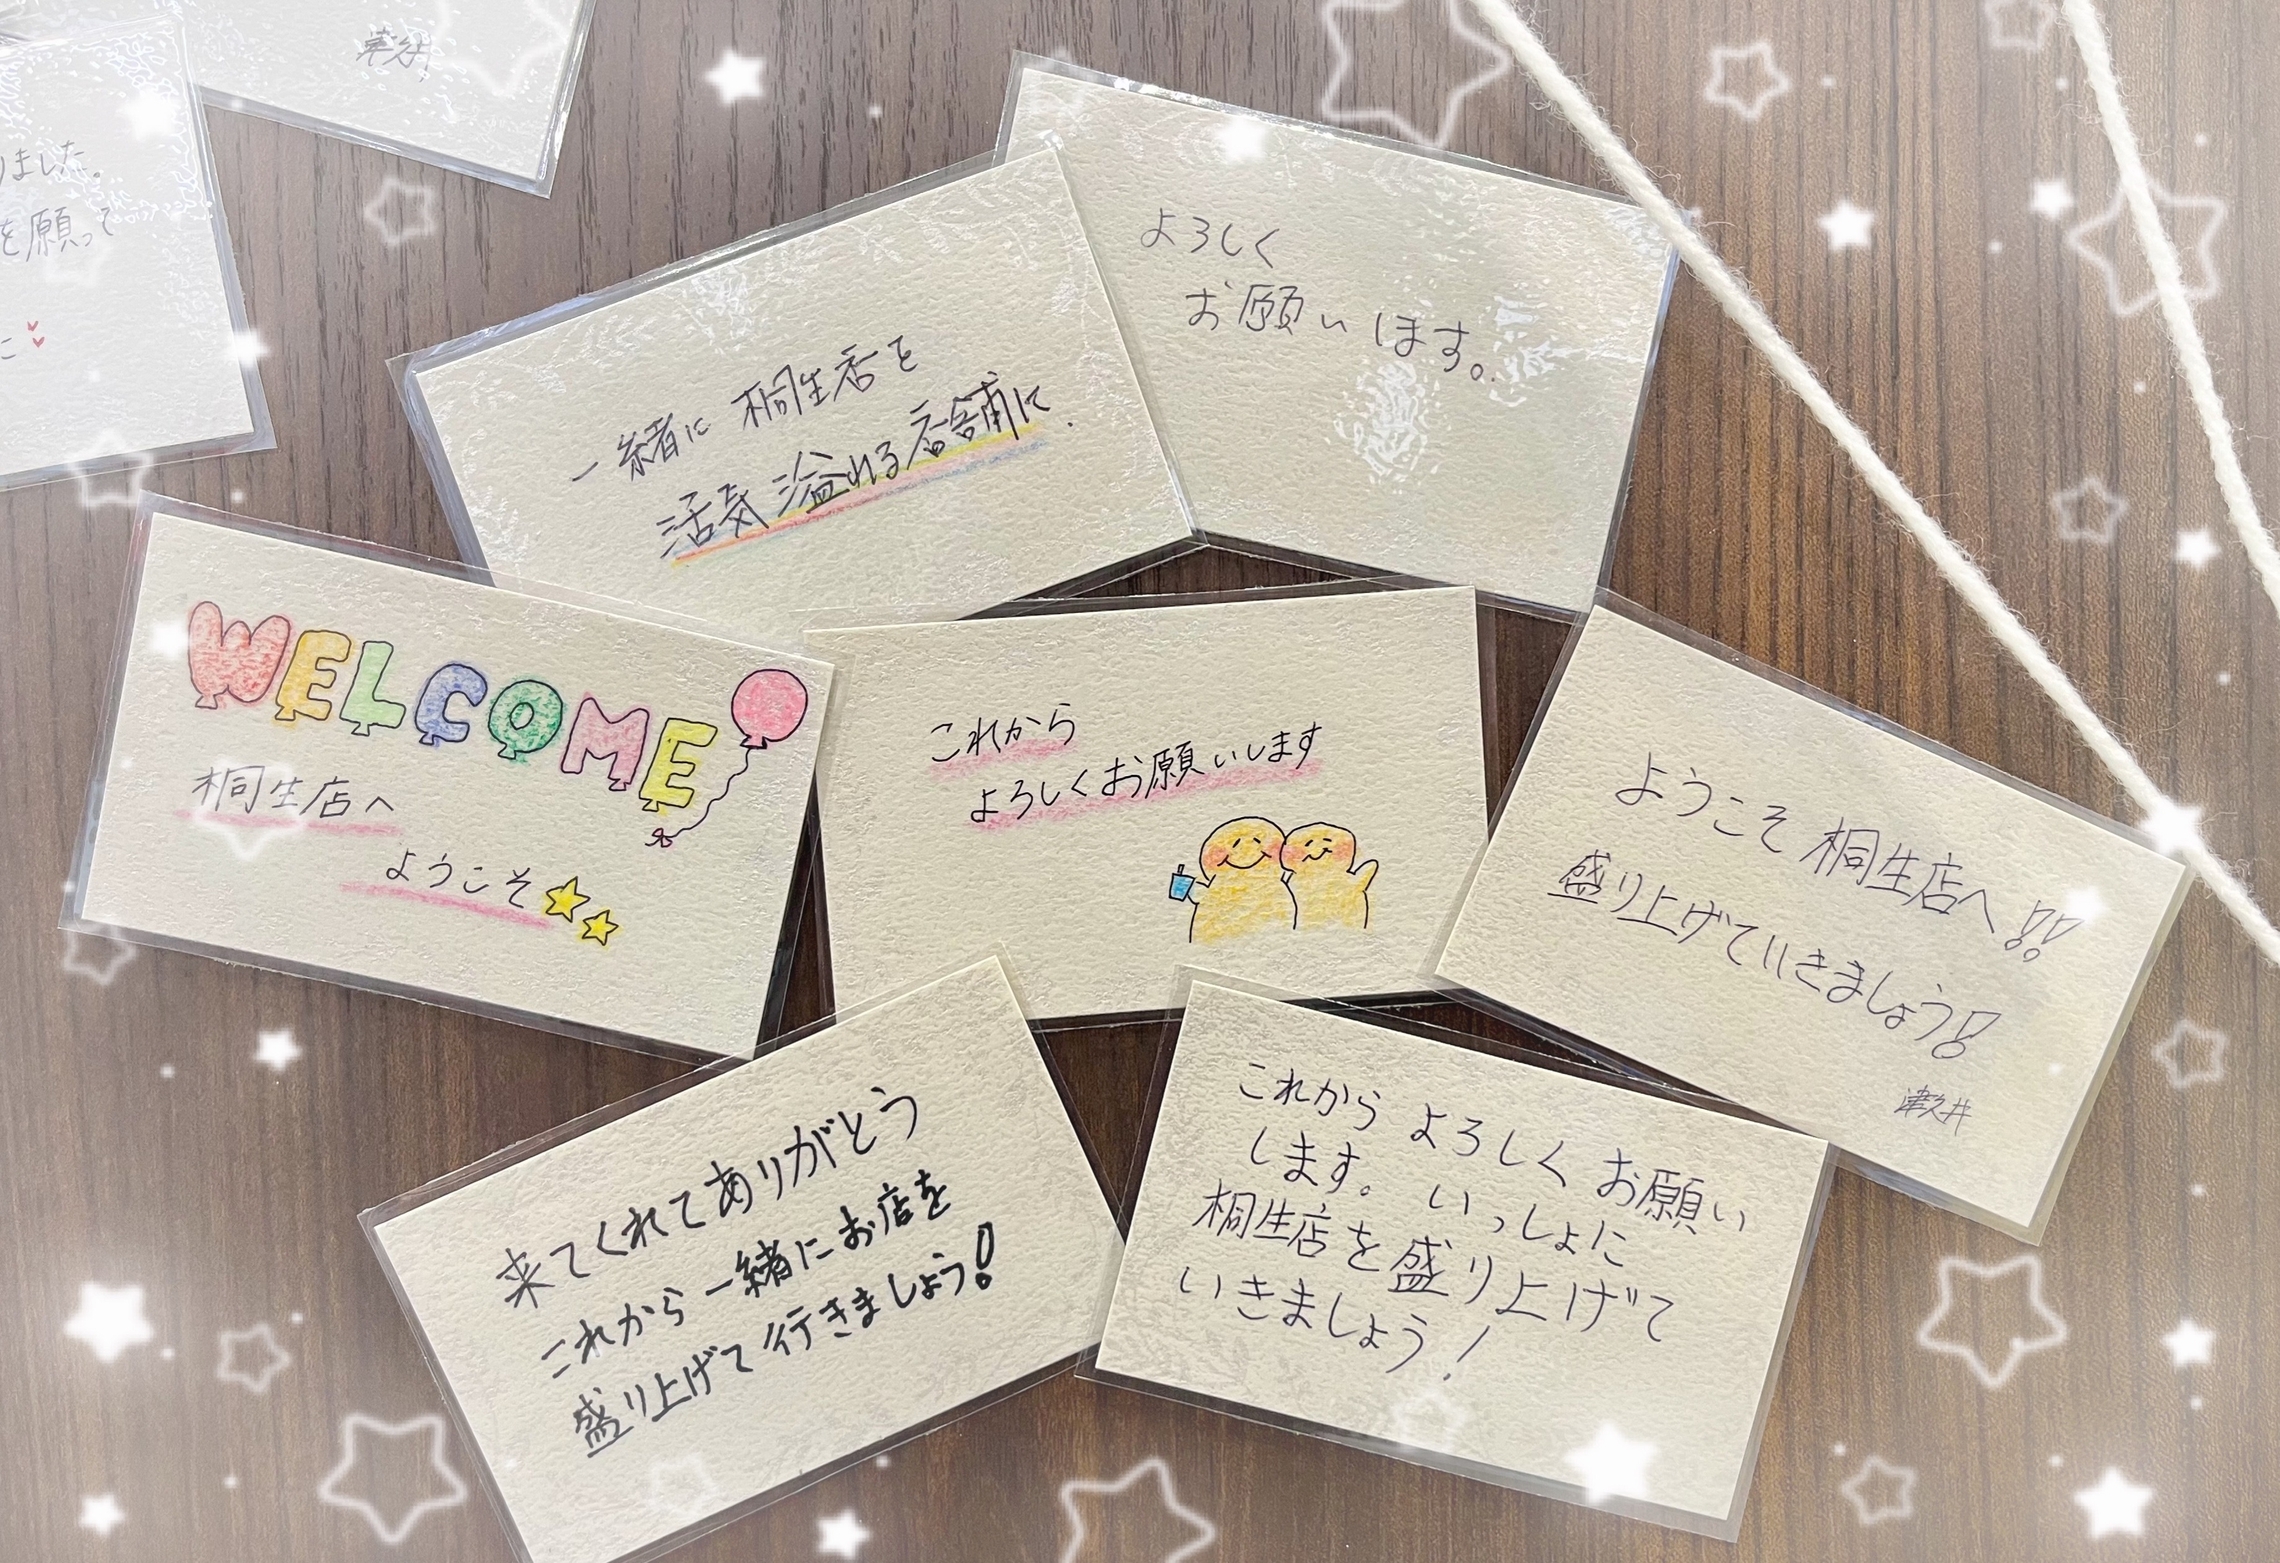 津久井
りました。
を願って
に
よろしく
お願いします。
一緒に 桐生店を
活気溢れる店舗に.
WELCOME
桐生店へ
ようこそ
これから
よろしくお願いします
ようこそ桐生店へ!!
盛り上げていきましょう!
津久井
来てくれてありがとう
これから一緒にお店を
盛り上げて行きましょう!
これから よろしく お願い
します。 いっしょに
桐生店を盛り上げて
いきましょう!